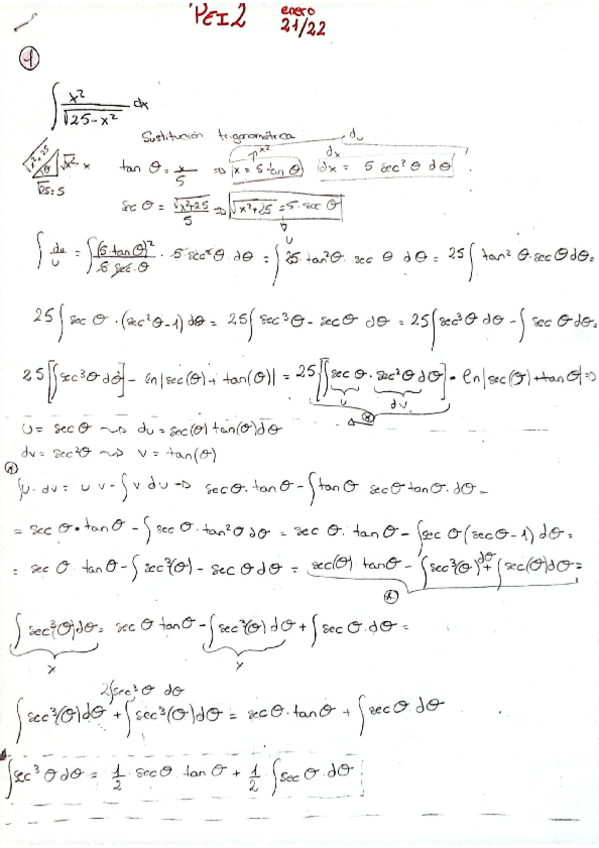 PEI2 enero 21/22
1
∫ x² / √25-x² dx
Sustitución trigonométrica
√x²+25 θ √x² x √25=5
tan θ = x/5 ⇒ x = 5 tan θ dx = 5 sec² θ dθ
sec θ = √x²+25 / 5 ⇒ √x²+25 = 5 · sec θ
25 ∫ sec θ · (sec²θ-1) dθ = 25 ∫ sec³θ - secθ dθ = 25 ∫ sec³θ dθ - ∫ sec θ dθ =
25 [∫ sec³θ dθ] - ln|sec(θ) + tan(θ)| = 25 [∫ sec θ · sec²θ dθ] - ln|sec(θ) + tan θ| ⇒
u dv
u = sec θ ⇝ du = sec(θ) tan(θ) dθ
dv = sec²θ ⇝ v = tan(θ)
∫ u · dv = u v - ∫ v du ⇒ sec θ · tan θ - ∫ tan θ sec θ tan θ · dθ =
= sec θ · tan θ - ∫ sec θ · tan² θ dθ = sec θ · tan θ - ∫ sec θ (sec θ - 1) dθ =
= sec θ · tan θ - ∫ sec³(θ) - sec θ dθ = sec(θ) · tan θ - ∫ sec³(θ) dθ + ∫ sec(θ) dθ =
∫ sec³(θ) dθ = sec θ tan θ - ∫ sec³(θ) dθ + ∫ sec θ · dθ =
x x
2∫ sec³ θ dθ
∫ sec³(θ) dθ + ∫ sec³(θ) dθ = sec θ · tan θ + ∫ sec θ dθ
∫ sec³ θ dθ = 1/2 · sec θ · tan θ + 1/2 · ∫ sec θ · dθ